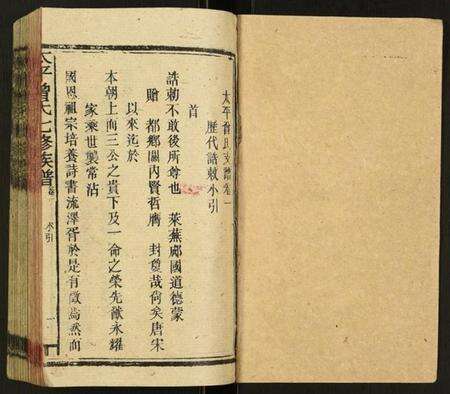 太平曾氏支譜卷一
歷代誥敕小引
首
誥勅不敢後所尊也　萊蕪郕國道德蒙
贈　都鄉關內賢哲膺　封夐哉尙矣唐宋
以來迄於
本朝上而三公之貴下及一命之榮先猷永耀
家乘世製常沾
國恩祖宗培養詩書流澤胥於是有徵焉然而
太平曾氏七修族譜
卷一
小引
一